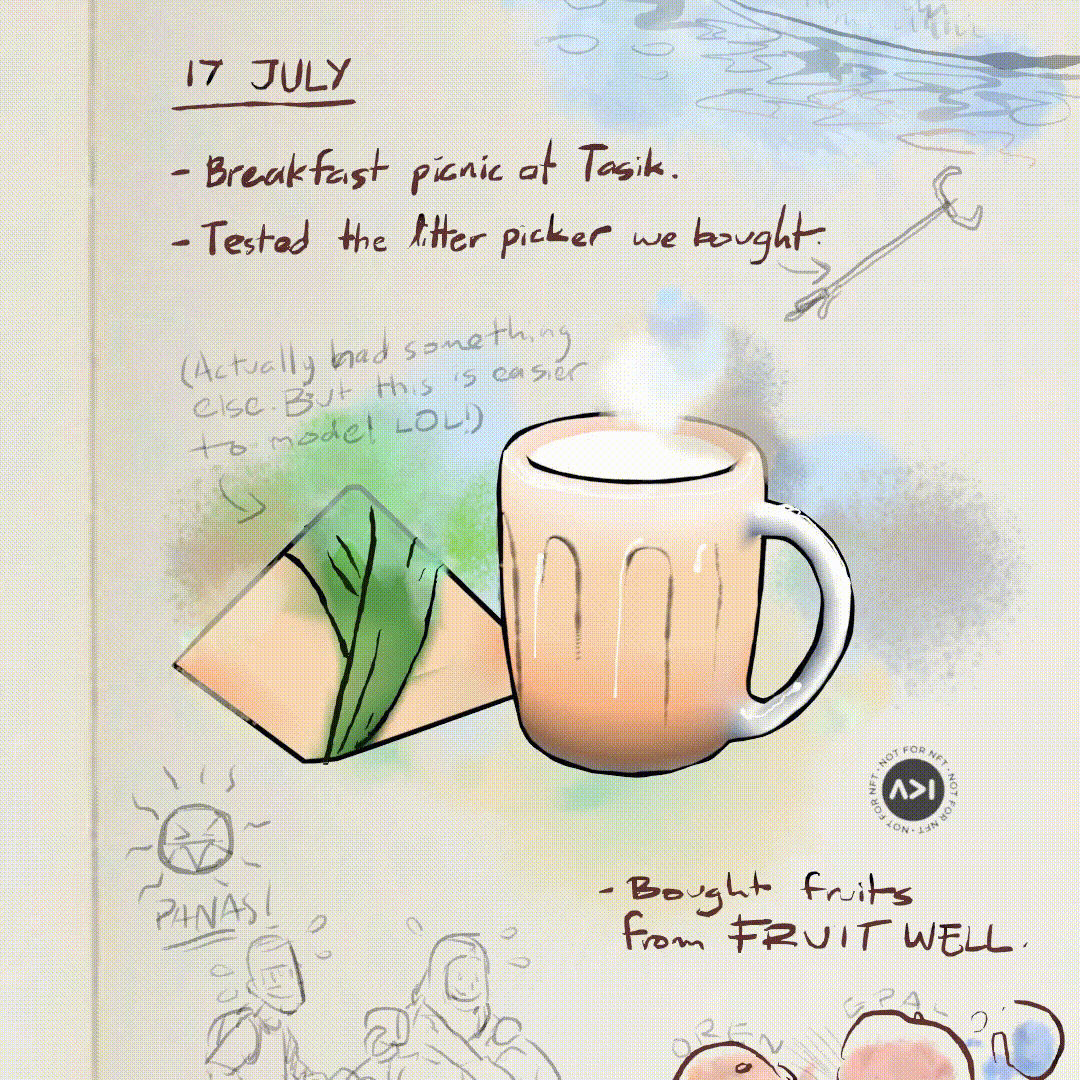 17 JULY
- Breakfast picnic at Tasik.
- Tested the litter picker we bought.
(Actually had something
else. But this is easier
to model LOL!)
NOT FOR NFT · NOT FOR NFT · NOT FOR NFT ·
PANAS!
- Bought fruits
from FRUIT WELL.
OREN
EPAL